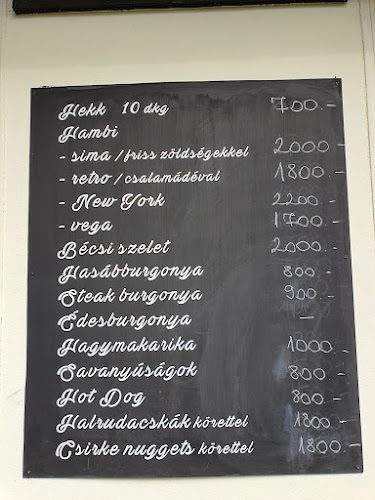 Hekk 10 dkg 700.-
Hambi
- sima / friss zöldségekkel 2000.-
- retro / csalamádéval 1800.-
- New York 2200.-
- vega 1700.-
Bécsi szelet 2000.-
Hasábburgonya 800.-
Steak burgonya 900.-
Édesburgonya —
Hagymakarika 1000.-
Savanyúságok 800.-
Hot Dog 800.-
Halrudacskák körettel 1800.-
Csirke nuggets körettel 1800.-